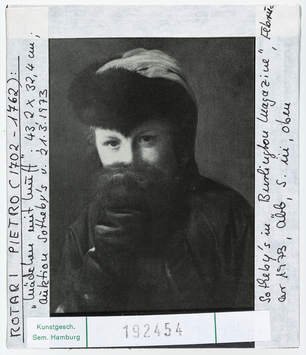 ROTARI PIETRO (1702-1762):
"Mädchen mit Muff", 43,2 x 32,4 cm;
Auktion Sotheby's v. 21.3.1973
Sotheby's in "Burlington Magazine", Febru
ar 1973, Abb. S. iii, oben
Kunstgesch.
Sem. Hamburg
192454